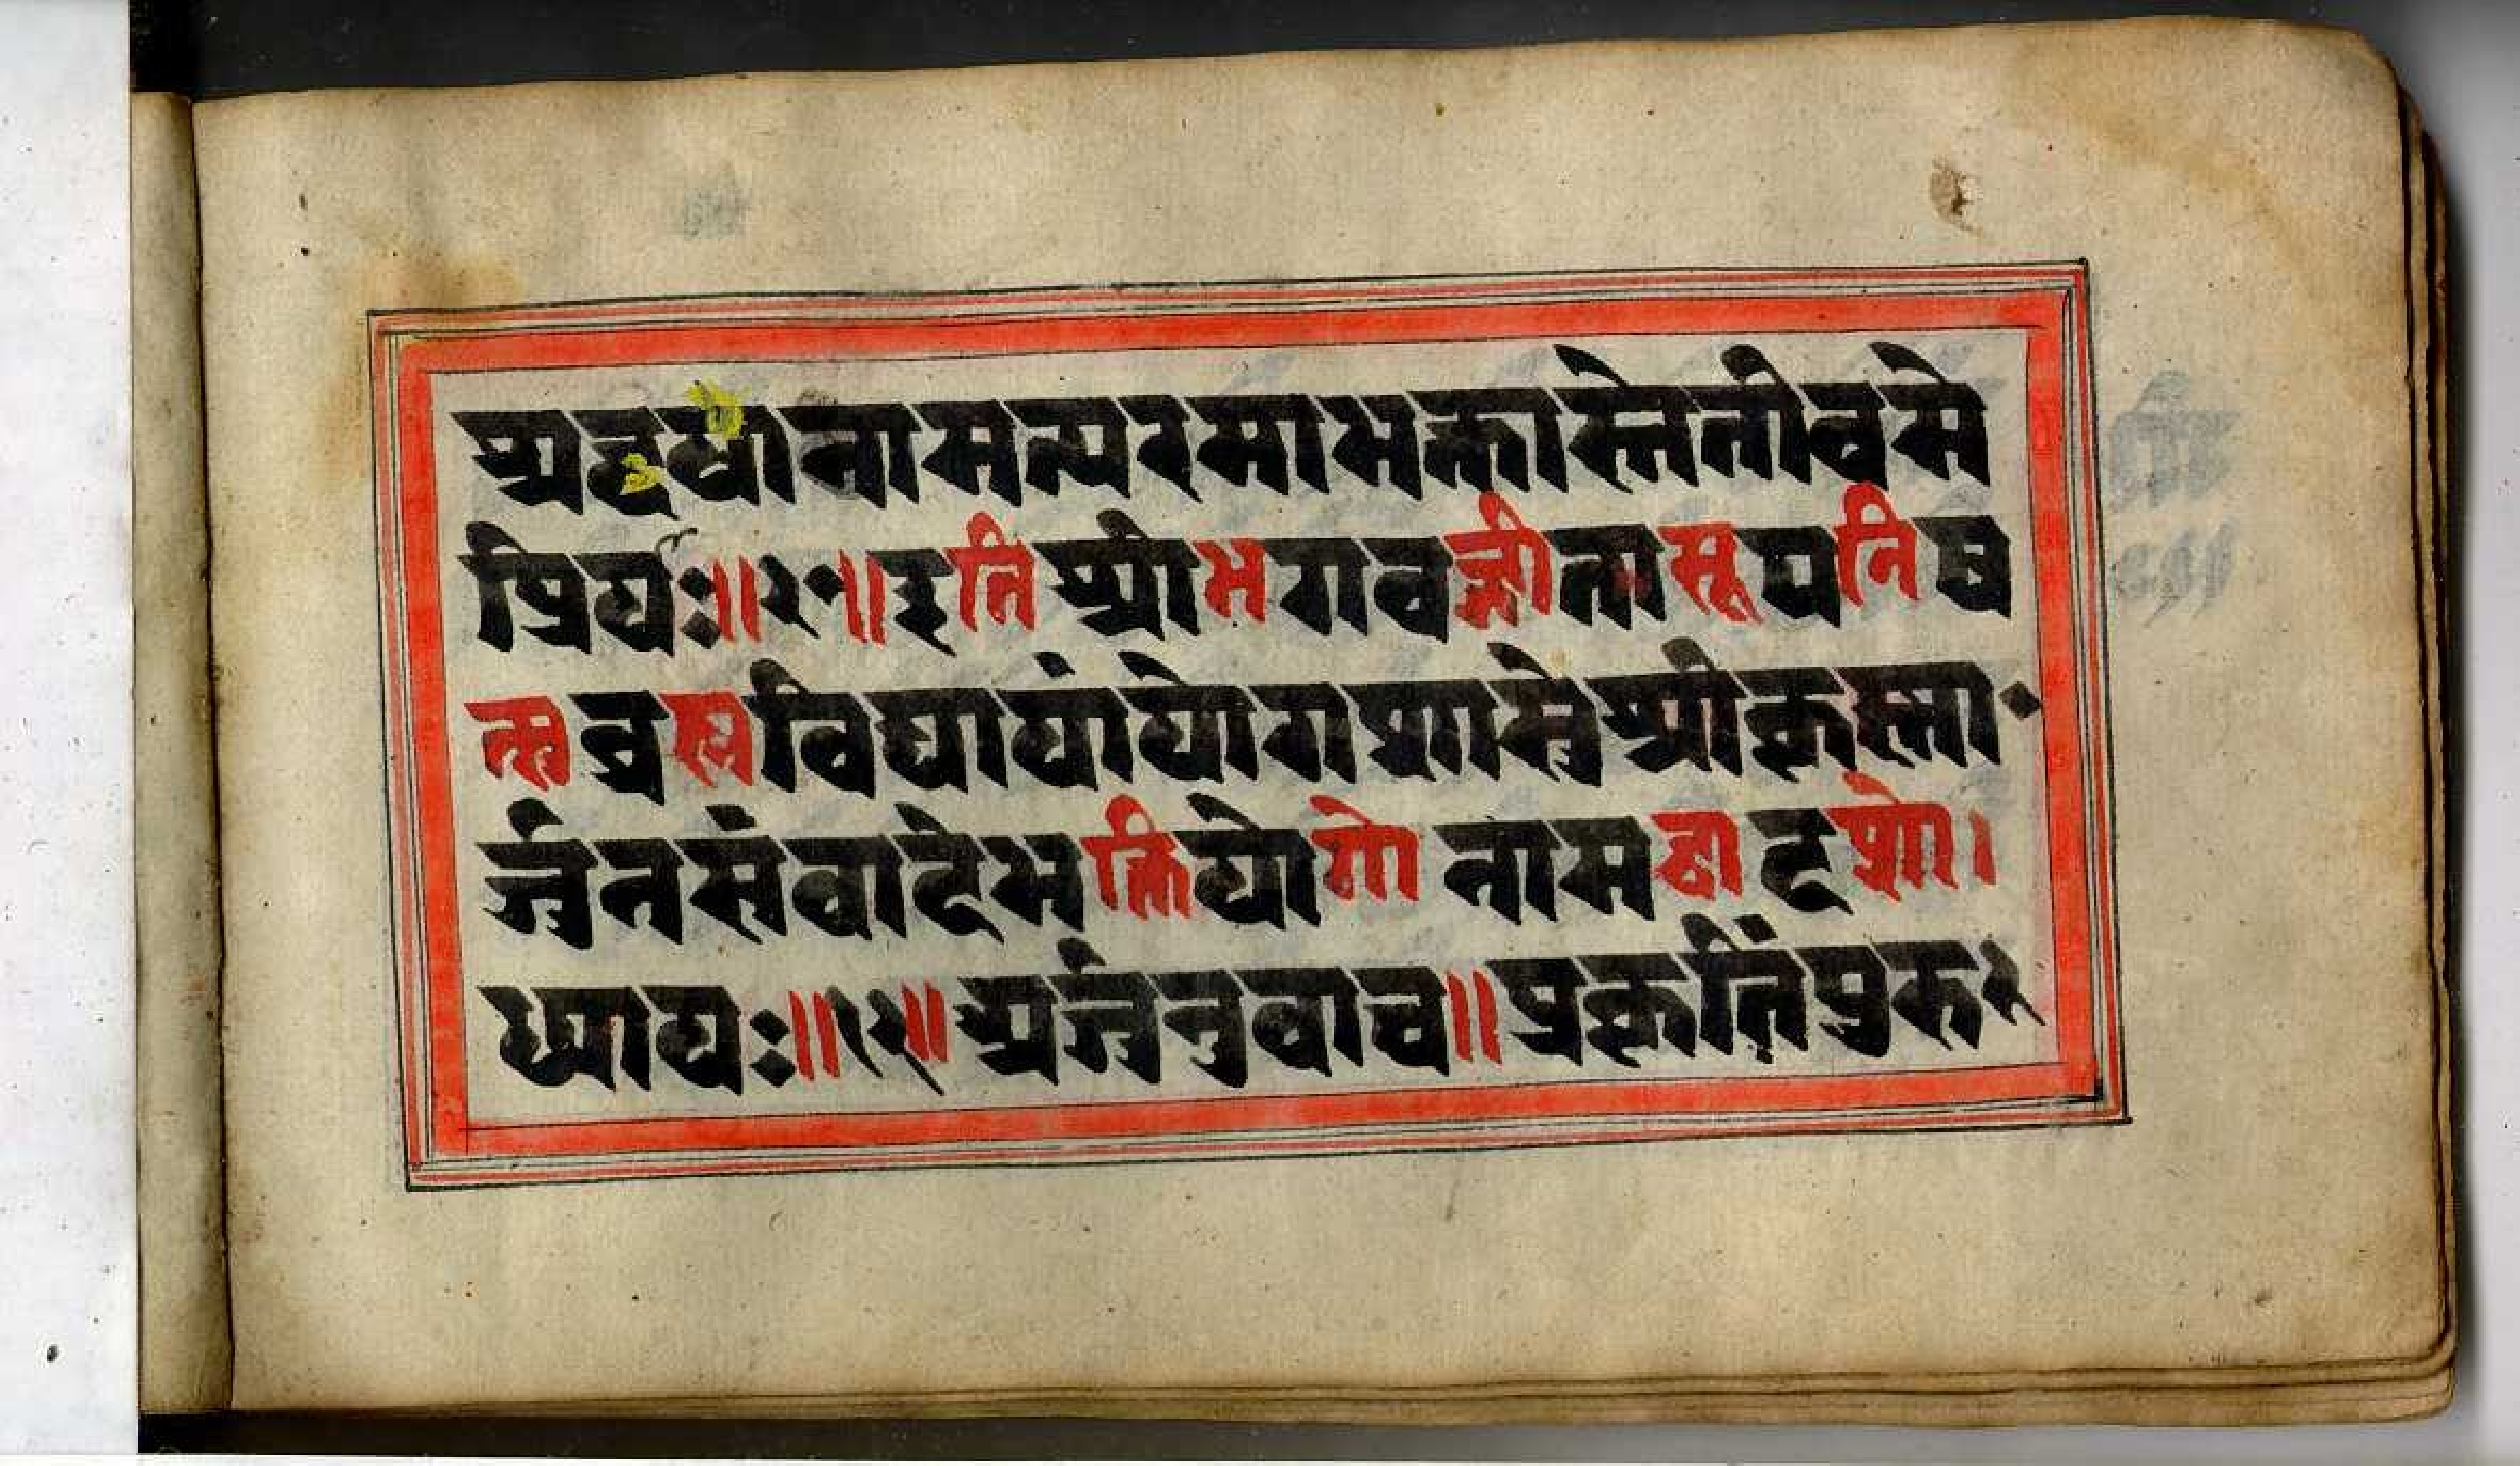 श्रद्दधानामत्परमाभक्तास्तेतीवमे
प्रियः॥२०॥इतिश्रीभगवद्गीतासूपनिष
त्सुब्रह्मविद्यायांयोगशास्त्रेश्रीकृष्णा
र्जुनसंवादेभक्तियोगोनामद्वादशो।
ध्यायः॥१२॥अर्जुनउवाच॥प्रकृतिंपुरु